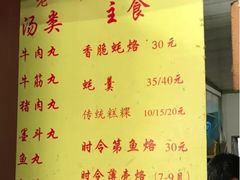 老
汤类 主食
牛肉丸 香脆蚝烙 30元
牛筋丸 蚝羹 35/40元
猪肉丸 传统糕粿 10/15/20元
墨斗丸 时令第鱼烙 30元
鱼丸 时令薄壳烙 (7-9月)